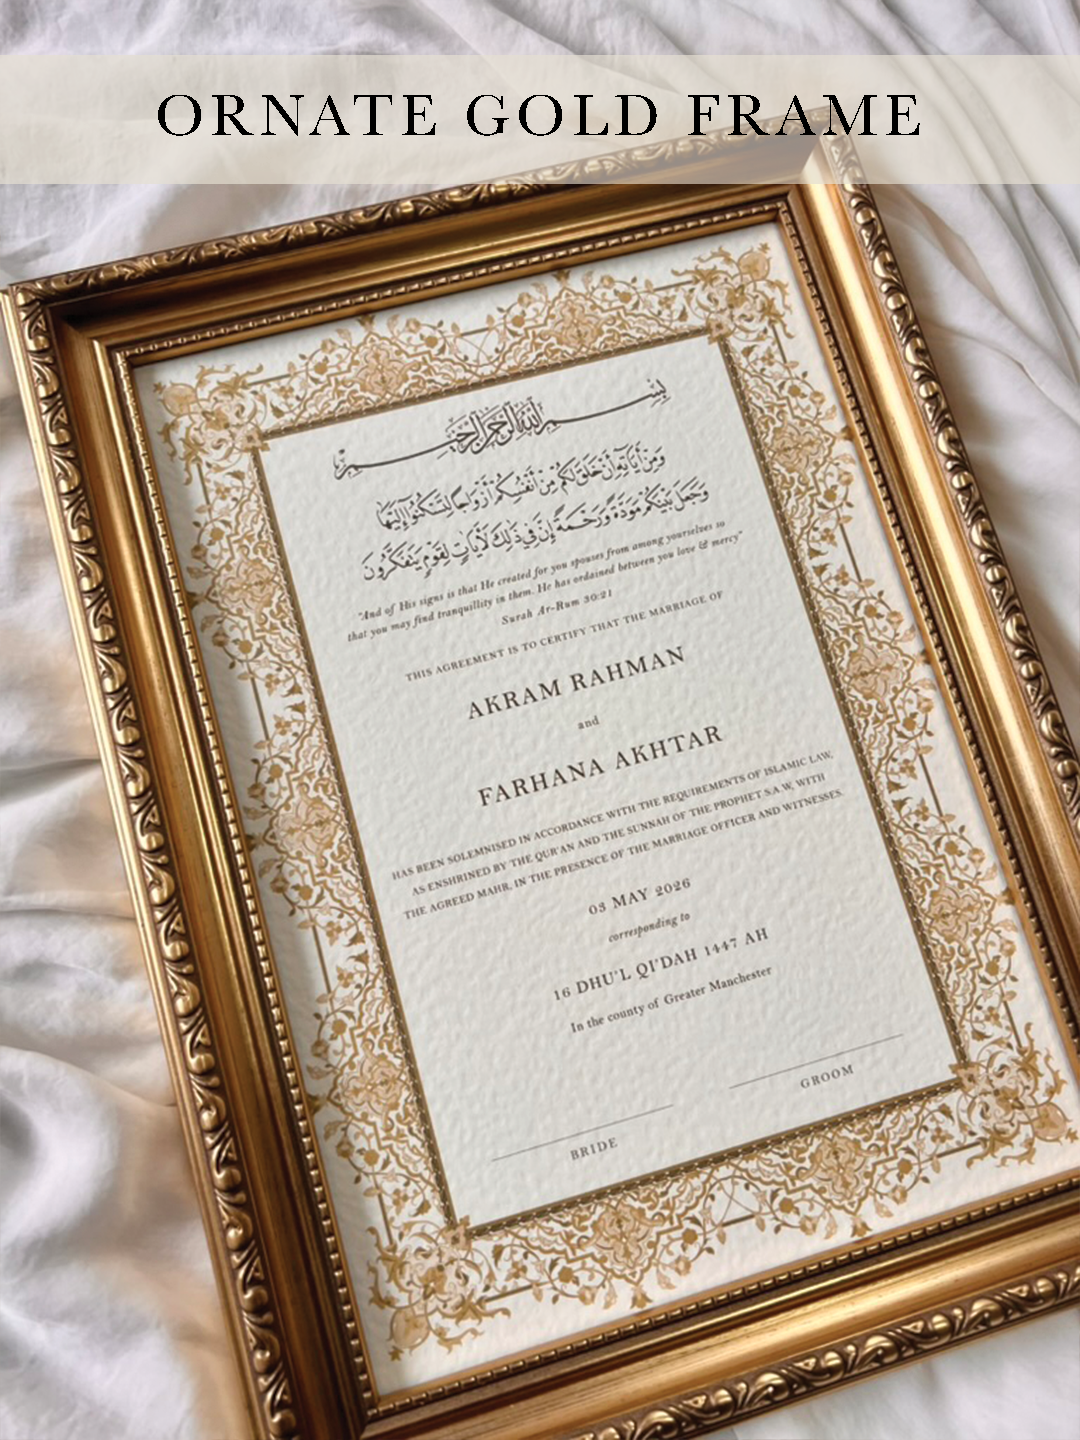 ORNATE GOLD FRAME
بسم الله الرحمن الرحيم
وَمِنْ أَيَاتِهِ أَنْ خَلَقَ لَكُمْ مِنْ أَنْفُسِكُمْ أَزْوَاجًا لِتَسْكُنُوا إِلَيْهَا
وَجَعَلَ بَيْنَكُمْ مَوَدَّةً وَرَحْمَةً إِنَّ فِي ذَلِكَ لَأَيَاتٍ لِقَوْمٍ يَتَفَكَّرُونَ
"And of His signs is that He created for you spouses from among yourselves so
that you may find tranquillity in them. He has ordained between you love & mercy"
Surah Ar-Rum 30:21
THIS AGREEMENT IS TO CERTIFY THAT THE MARRIAGE OF
AKRAM RAHMAN
and
FARHANA AKHTAR
HAS BEEN SOLEMNISED IN ACCORDANCE WITH THE REQUIREMENTS OF ISLAMIC LAW,
AS ENSHRINED BY THE QUR'AN AND THE SUNNAH OF THE PROPHET S.A.W, WITH
THE AGREED MAHR, IN THE PRESENCE OF THE MARRIAGE OFFICER AND WITNESSES.
03 MAY 2026
corresponding to
16 DHU'L QI'DAH 1447 AH
In the county of Greater Manchester
BRIDE
GROOM